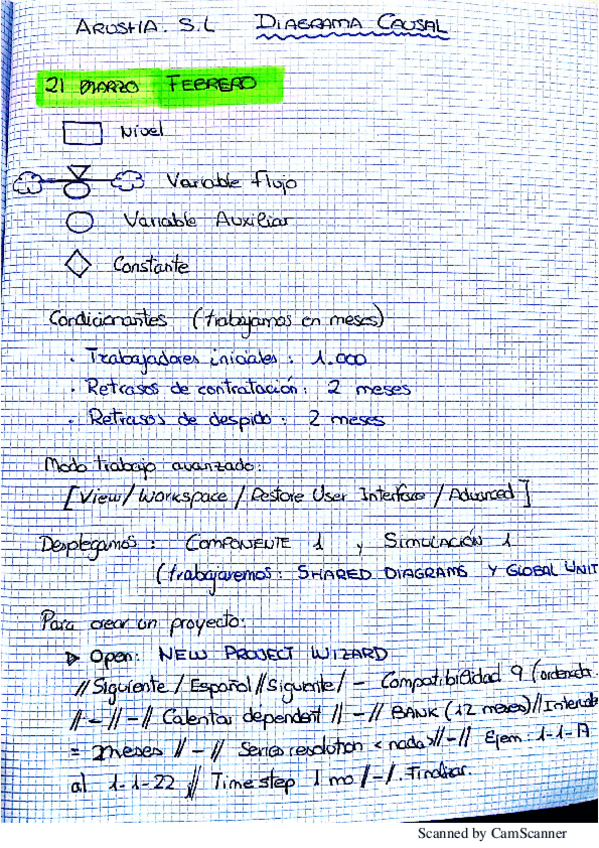 ARUSHIA. S.L DIAGRAMA CAUSAL
21 MARZO FEBRERO
Nivel
Variable flujo
Variable Auxiliar
Constante
Condicionantes (trabajamos en meses)
· Trabajadores iniciales : 1.000
· Retrasos de contratación: 2 meses
· Retrasos de despido : 2 meses
Modo trabajo avanzado:
[View/ Workspace / Restore User Interface / Advanced]
Desplegamos : COMPONENTE 1 y SIMULACIÓN 1
(trabajaremos: SHARED DIAGRAMS Y GLOBAL UNIT
Para crear un proyecto:
▷ Open: NEW PROJECT WIZARD
// Siguiente / Español // Siguiente / - Compatibilidad 9 (ordenador
// - // - // Calentar dependent // - // BANK (12 meses) // Intervalo
= 2 meses // - // Series resolution < nada> // - // Ejem: 1-1-17
al 1-1-22 // Time step 1 mo / - /. Finalizar.
Scanned by CamScanner